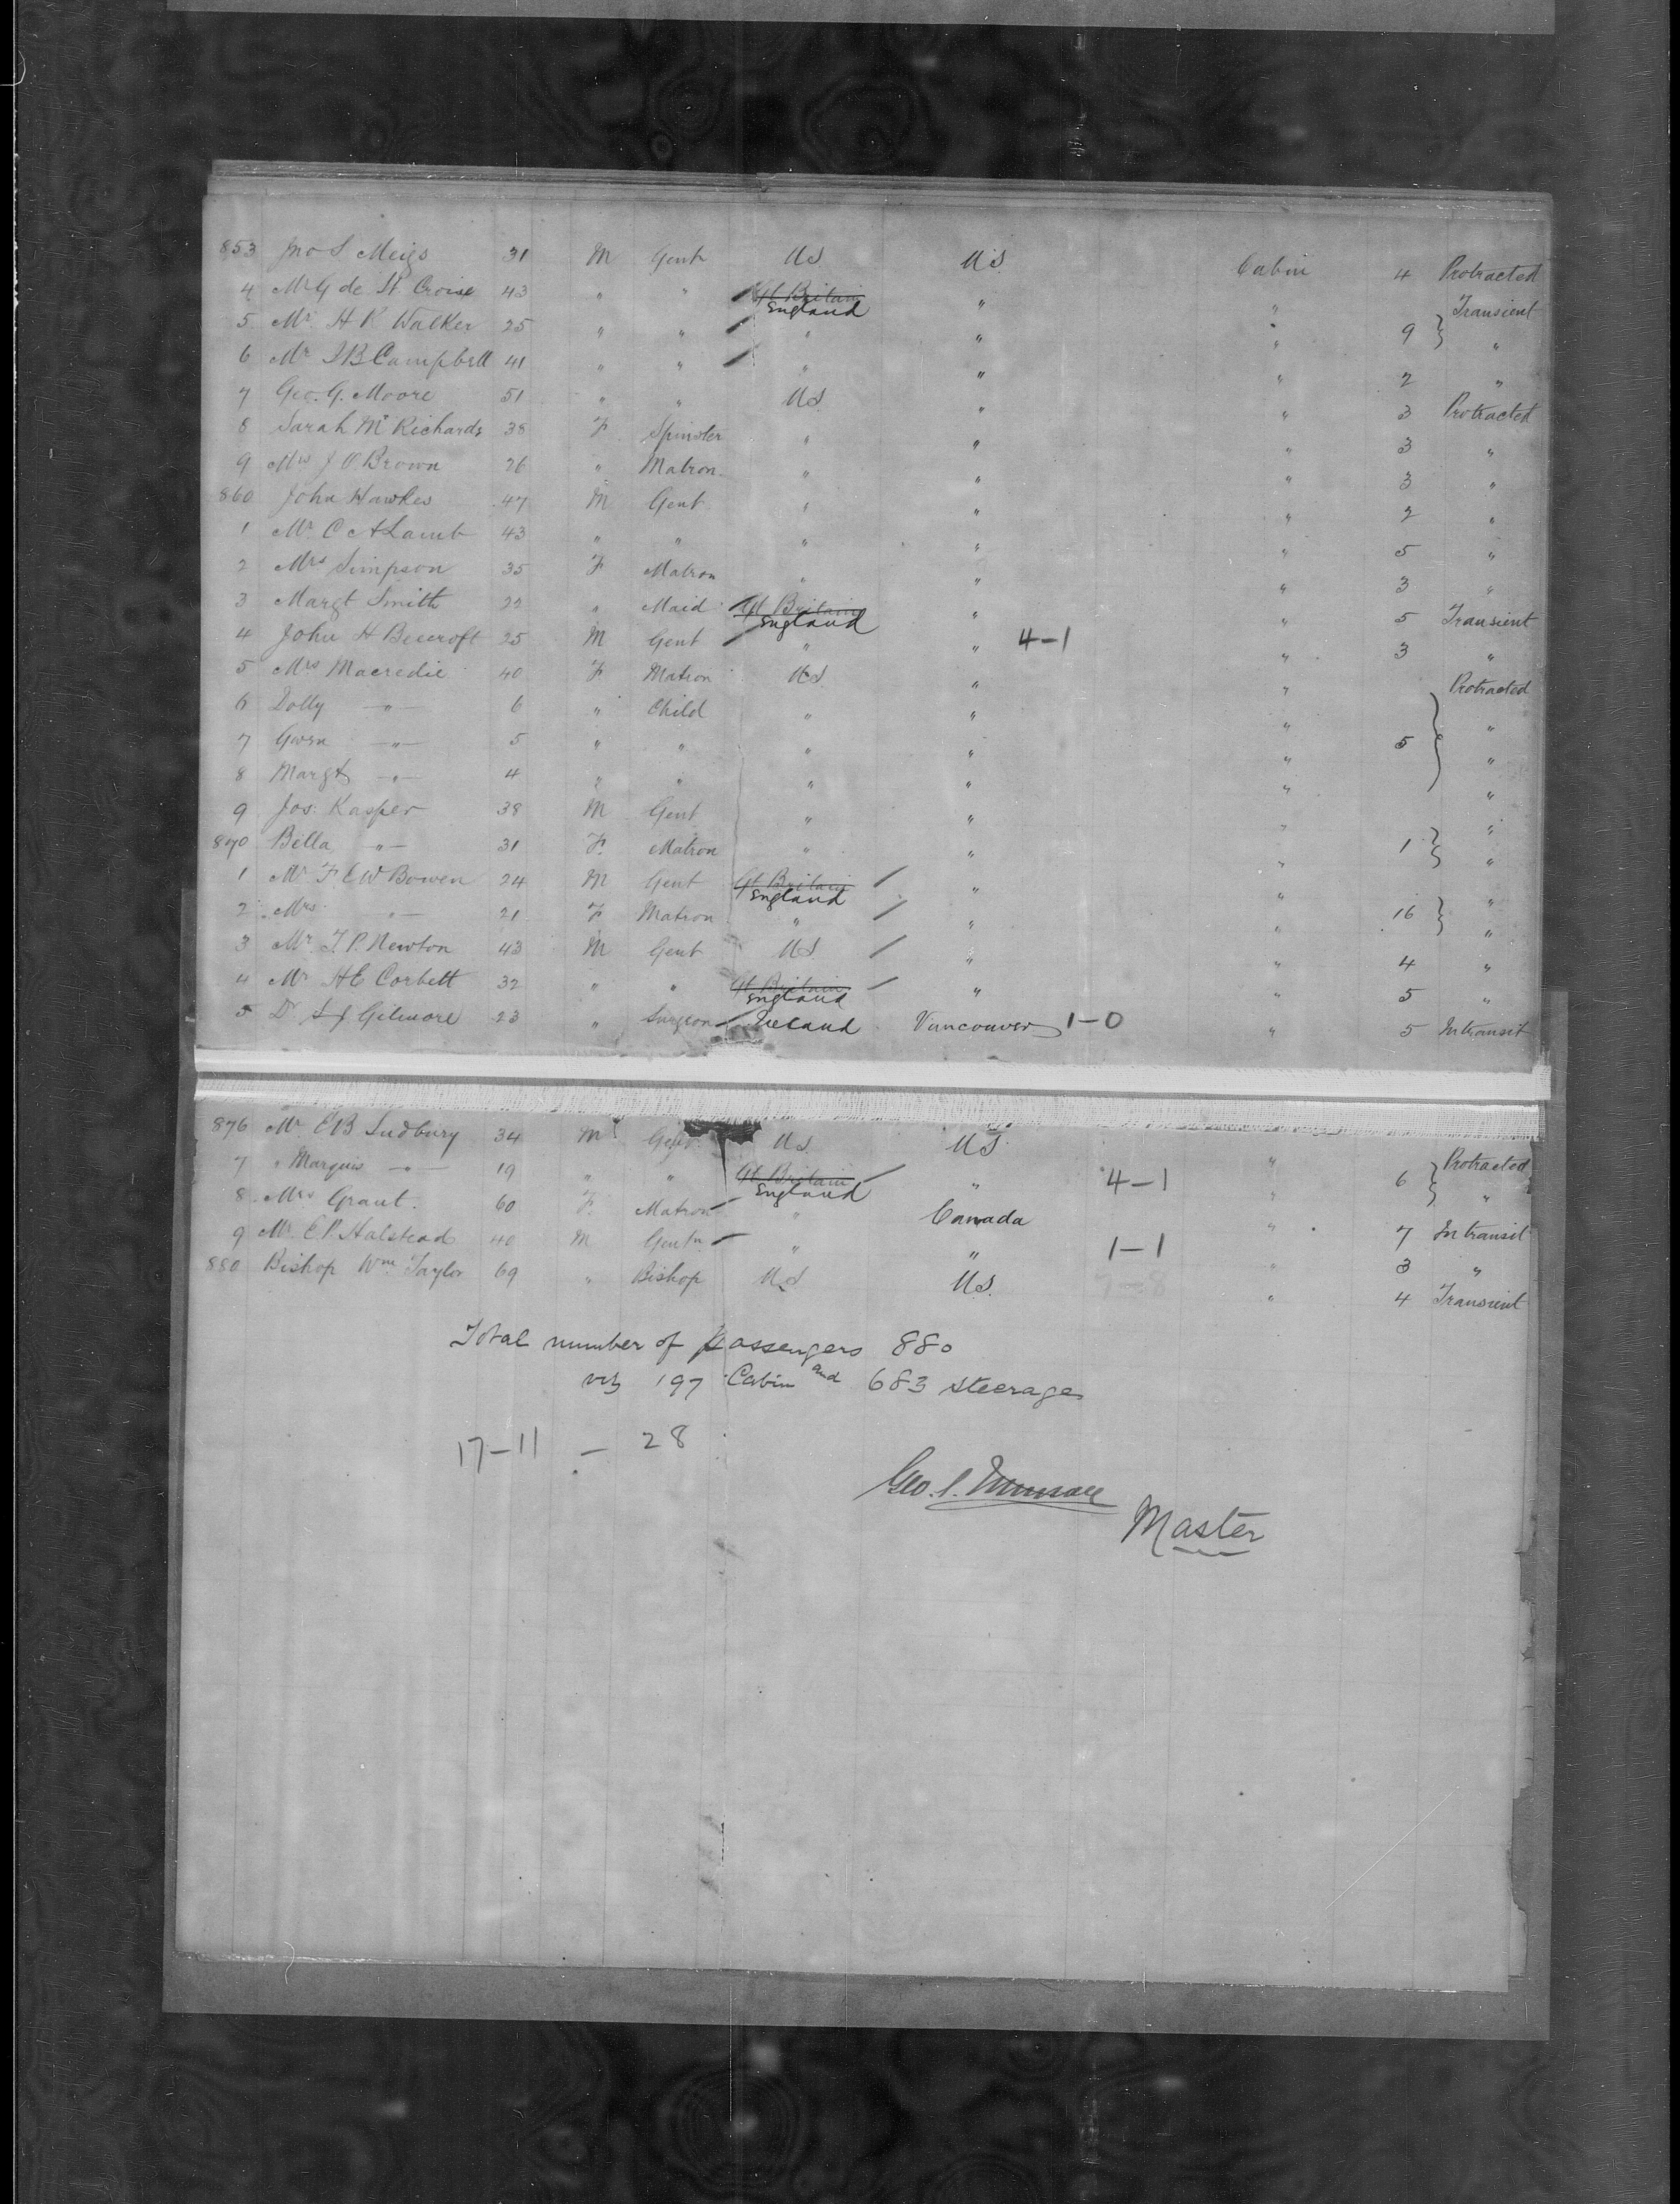 853 Jno S Meigs 31 M Gent US US Cabin 4 Protracted
4 Mr G de St. Croix 43 " " Gt Britain England " " Transient
5 Mr H R Walker 25 " " " " " 9 } "
6 Mr J B Campbell 41 " " " " " 2 "
7 Geo. G. Moore 51 " " US " " 3 Protracted
8 Sarah M Richards 38 F Spinster " " " 3 "
9 Mrs J O Brown 26 " Matron " " " 3 "
860 John Hawkes 47 M Gent " " " 2 "
1 Mr C A Lamb 43 " " " " " 5 "
2 Mrs Simpson 35 F Matron " " " 3 "
3 Margt Smith 22 " Maid Gt Britain England " " 5 Transient
4 John H Beecroft 25 M Gent " " 4-1 " 3 "
5 Mrs Macredie 40 F Matron US " " Protracted
6 Dolly -"- 6 " Child " " " "
7 Gwen -"- 5 " " " " " 5 } "
8 Margt -"- 4 " " " " " "
9 Jos: Kasper 38 M Gent " " " "
870 Bella -"- 31 F Matron " " " 1 } "
1 Mr F E W Bowen 24 M Gent Gt Britain England " " "
2 Mrs -"- 21 F Matron " " " 16 } "
3 Mr T. P. Newton 43 M Gent US " " 4 "
4 Mr H E Corbett 32 " " Gt Britain England " " 5 "
5 Dr S J Gilmore 23 " Surgeon Ireland Vancouver 1-0 " 5 Intransit
876 Mr E B Sudbury 34 M Gent US US " Protracted
7 " Marquis -"- 19 " " Gt Britain England " 4-1 " 6 } "
8 Mrs Grant. 60 F Matron " Canada " 7 Intransit
9 Mr E P Halstead 40 M Gentn " " 1-1 " 3 "
880 Bishop Wm Taylor 69 " Bishop US US. " 4 Transient
Total number of passengers 880
viz 197 Cabin and 683 steerage
17-11 - 28
Geo.
Master